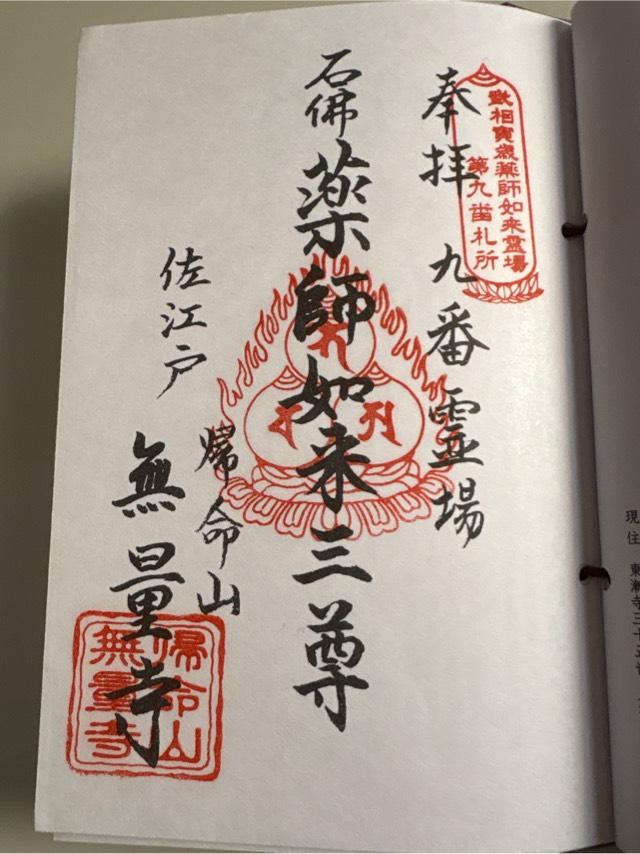 現
住
東漸寺三十
武相寅歳薬師如来霊場
第九番札所
奉拝 九番霊場
石佛 薬師如来三尊
帰命山
佐江戸 無量寺
帰命山
無量寺